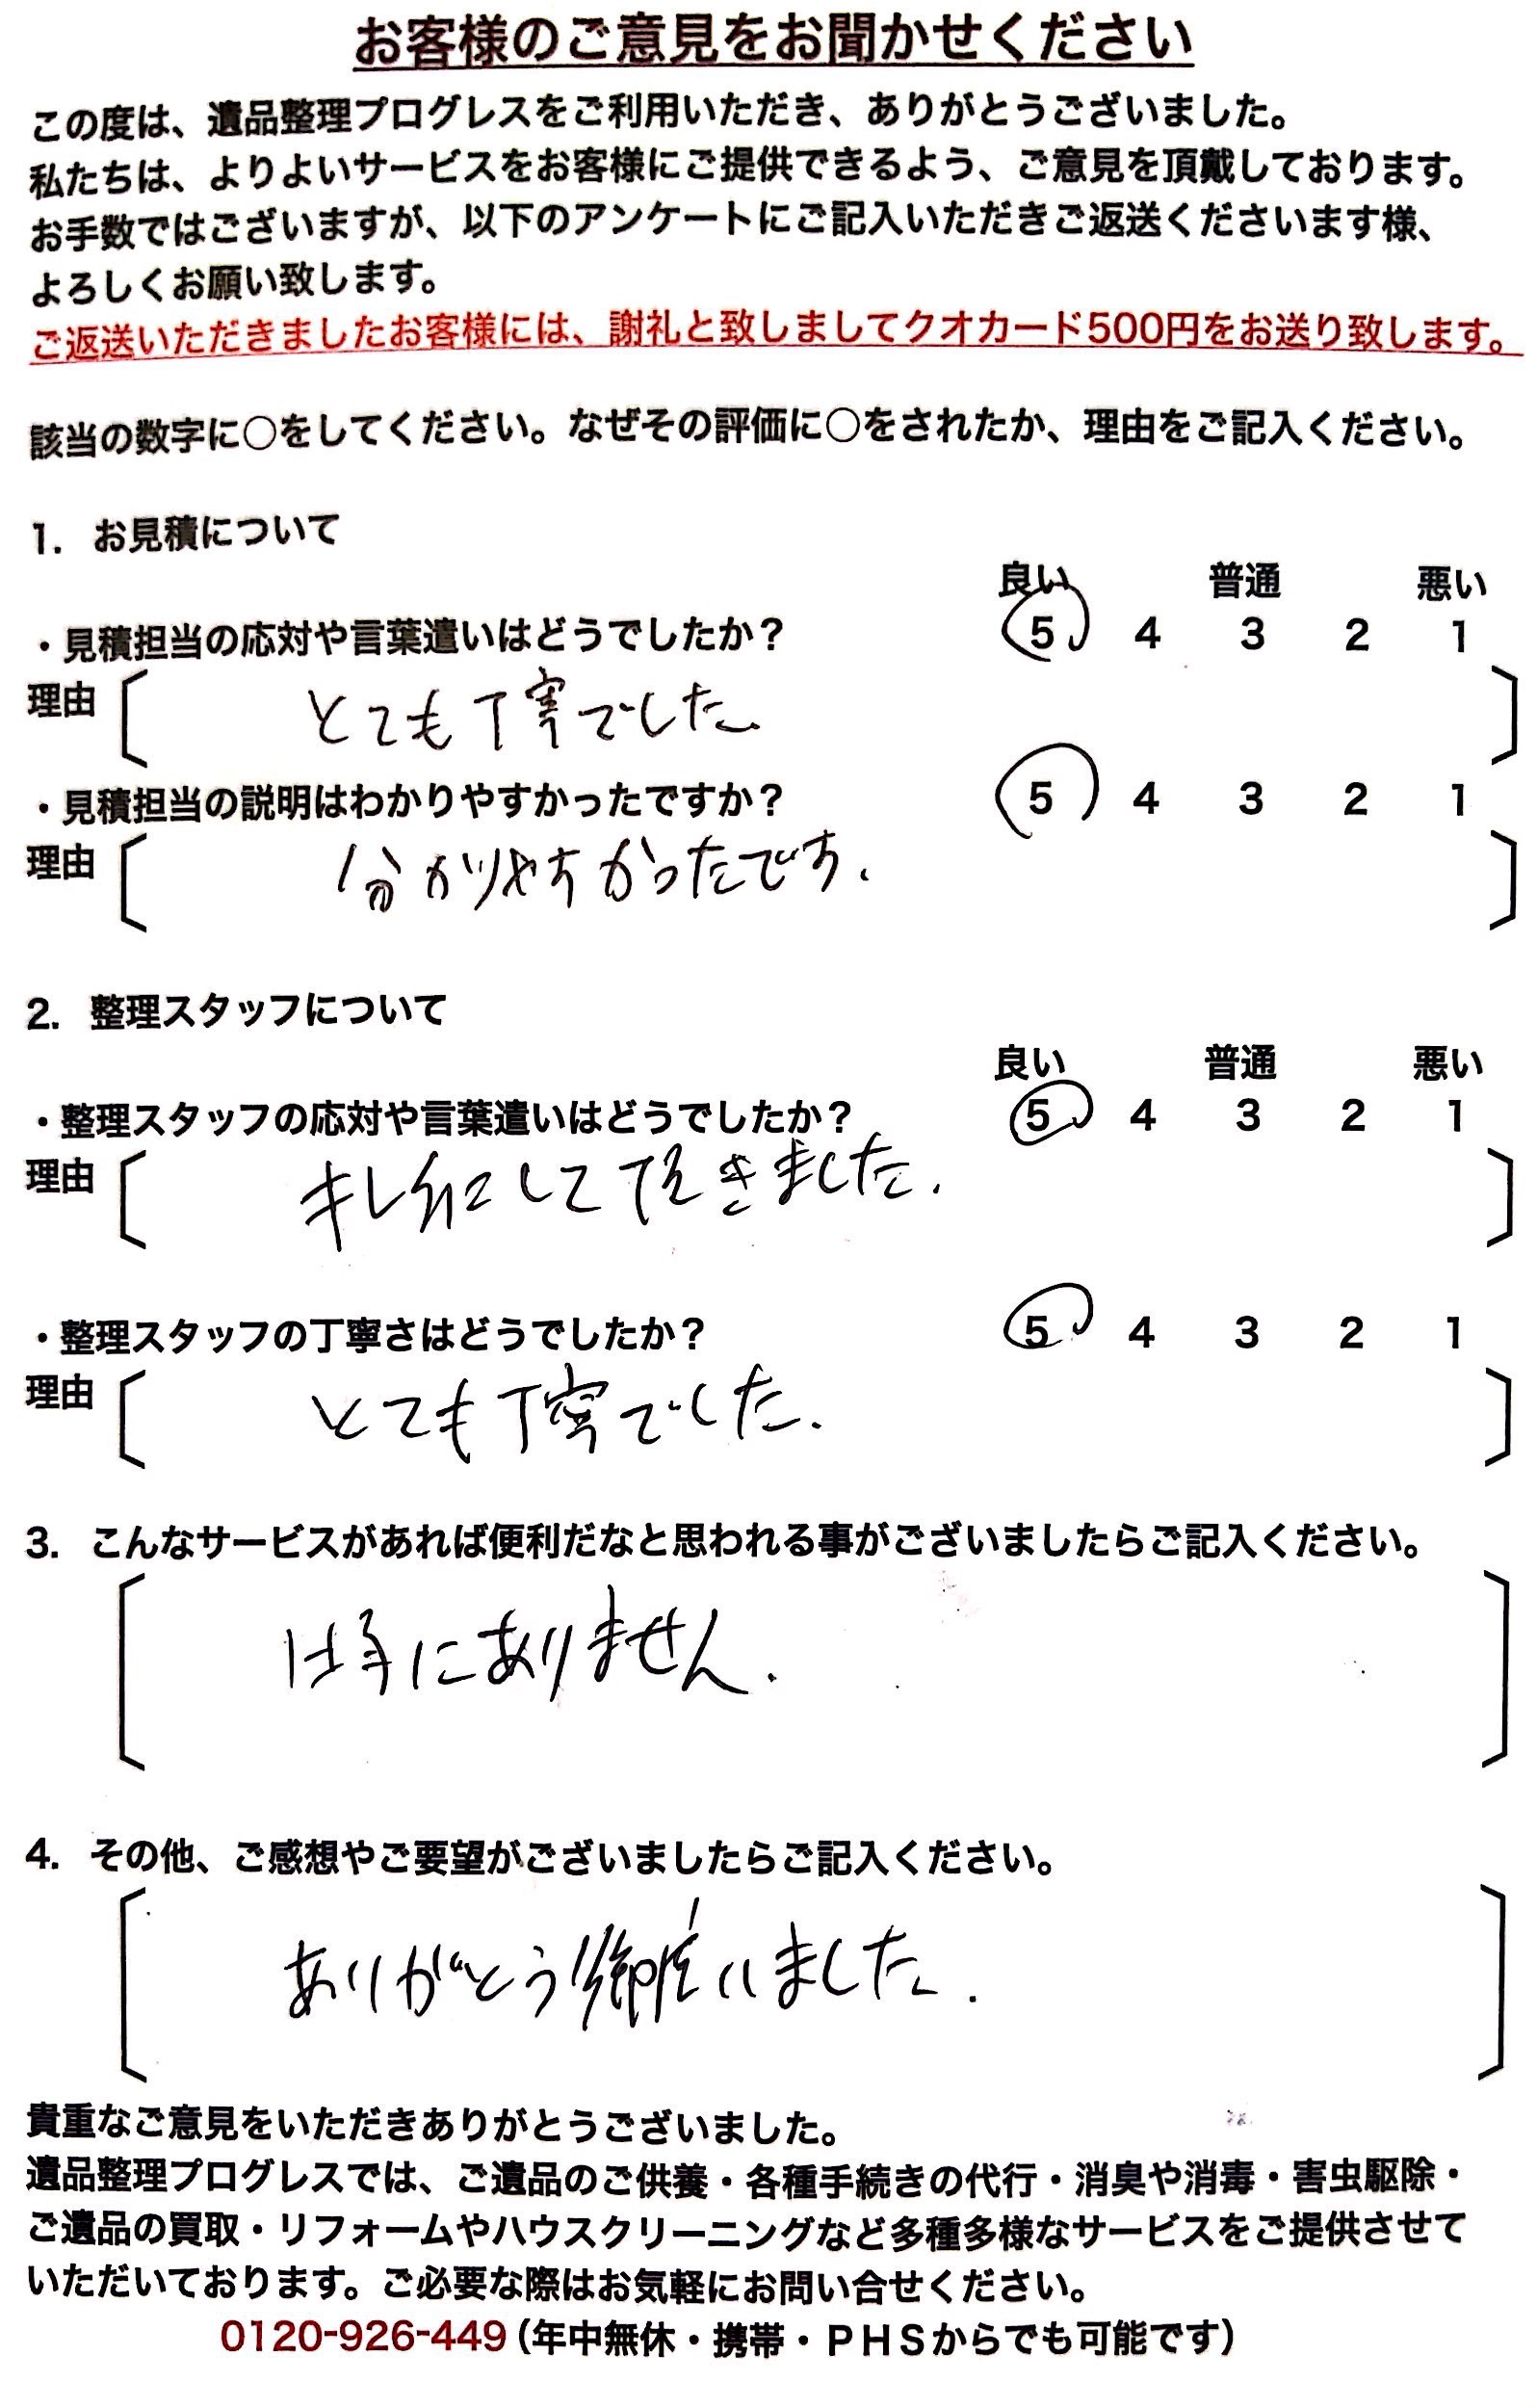 お客様のご意見をお聞かせください
この度は、遺品整理プログレスをご利用いただき、ありがとうございました。
私たちは、よりよいサービスをお客様にご提供できるよう、ご意見を頂戴しております。
お手数ではございますが、以下のアンケートにご記入いただきご返送くださいます様、
よろしくお願い致します。
ご返送いただきましたお客様には、謝礼と致しましてクオカード500円をお送り致します。
該当の数字に○をしてください。なぜその評価に○をされたか、理由をご記入ください。
1. お見積について
良い 普通 悪い
・見積担当の応対や言葉遣いはどうでしたか？ 5 4 3 2 1
理由 〔 とても丁寧でした 〕
・見積担当の説明はわかりやすかったですか？ 5 4 3 2 1
理由 〔 分かりやすかったです. 〕
2. 整理スタッフについて
良い 普通 悪い
・整理スタッフの応対や言葉遣いはどうでしたか？ 5 4 3 2 1
理由 〔 キレイにして頂きました. 〕
・整理スタッフの丁寧さはどうでしたか？ 5 4 3 2 1
理由 〔 とても丁寧でした. 〕
3. こんなサービスがあれば便利だなと思われる事がございましたらご記入ください。
〔 特にありません. 〕
4. その他、ご感想やご要望がございましたらご記入ください。
〔 ありがとう御座いました. 〕
貴重なご意見をいただきありがとうございました。
遺品整理プログレスでは、ご遺品のご供養・各種手続きの代行・消臭や消毒・害虫駆除・
ご遺品の買取・リフォームやハウスクリーニングなど多種多様なサービスをご提供させて
いただいております。ご必要な際はお気軽にお問い合せください。
0120-926-449（年中無休・携帯・ＰＨＳからでも可能です）